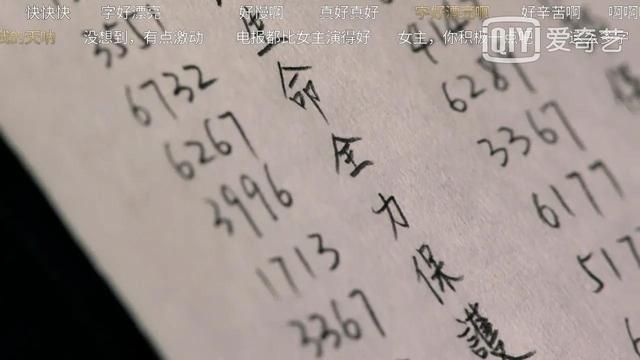 快快快 字好漂亮 好慢啊 真好真好 字好漂亮啊 好辛苦啊
没想到，有点激动 电报都比女主演得好 女主，你积极
QIY 爱奇艺
6732
6267
3996
1713
3367
命全力保護
6287
3367
6177
517